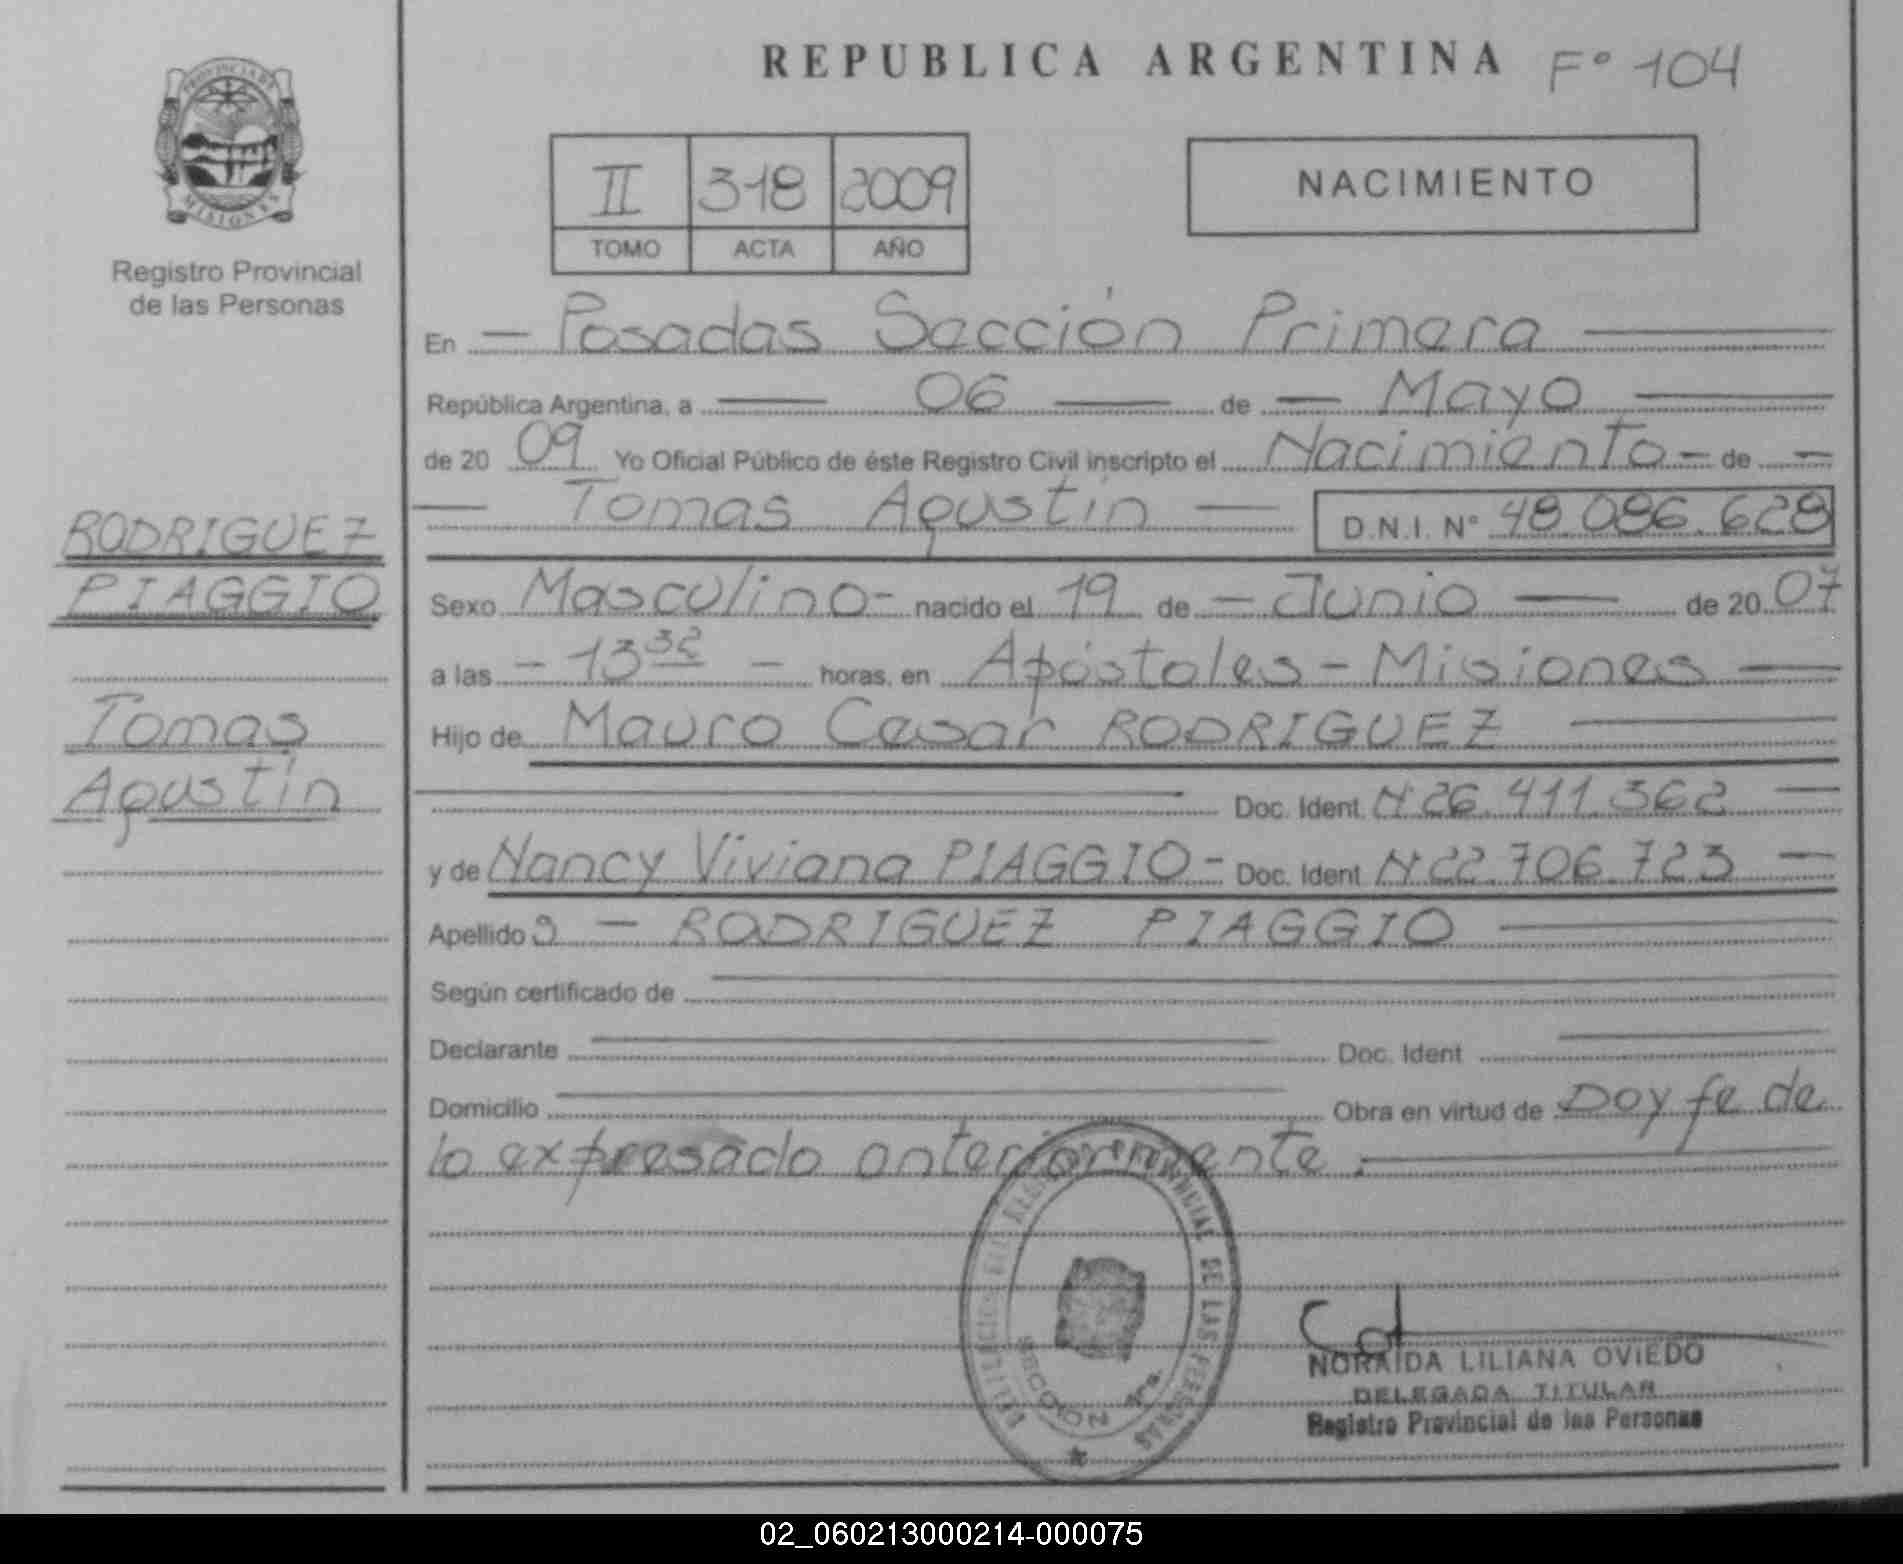 REPUBLICA ARGENTINA Fº 104
PROVINCIA DE
MISIONES
Registro Provincial
de las Personas
II 318 2009
TOMO ACTA AÑO
NACIMIENTO
En — Posadas Sección Primera —
República Argentina, a — 06 — de — Mayo —
de 20 09 Yo Oficial Público de éste Registro Civil inscripto el Nacimiento — de —
— Tomas Agustín — D.N.I. Nº 48.086.628
RODRIGUEZ
PIAGGIO
Tomas
Agustín
Sexo Masculino - nacido el 19 de — Junio — de 20 07
a las - 13 32 - horas, en Apóstoles - Misiones —
Hijo de Mauro Cesar RODRIGUEZ —
— Doc. Ident. Nº 26.411.362 —
y de Nancy Viviana PIAGGIO - Doc. Ident Nº 22.706.723 —
Apellido s — RODRIGUEZ PIAGGIO —
Según certificado de —
Declarante — Doc. Ident —
Domicilio — Obra en virtud de Doy fe de
lo expresado anteriormente. —
PROVINCIAL DE LAS PERSONAS
SECCION 1ra.
NORAIDA LILIANA OVIEDO
DELEGADA TITULAR
Registro Provincial de las Personas
02_060213000214-000075